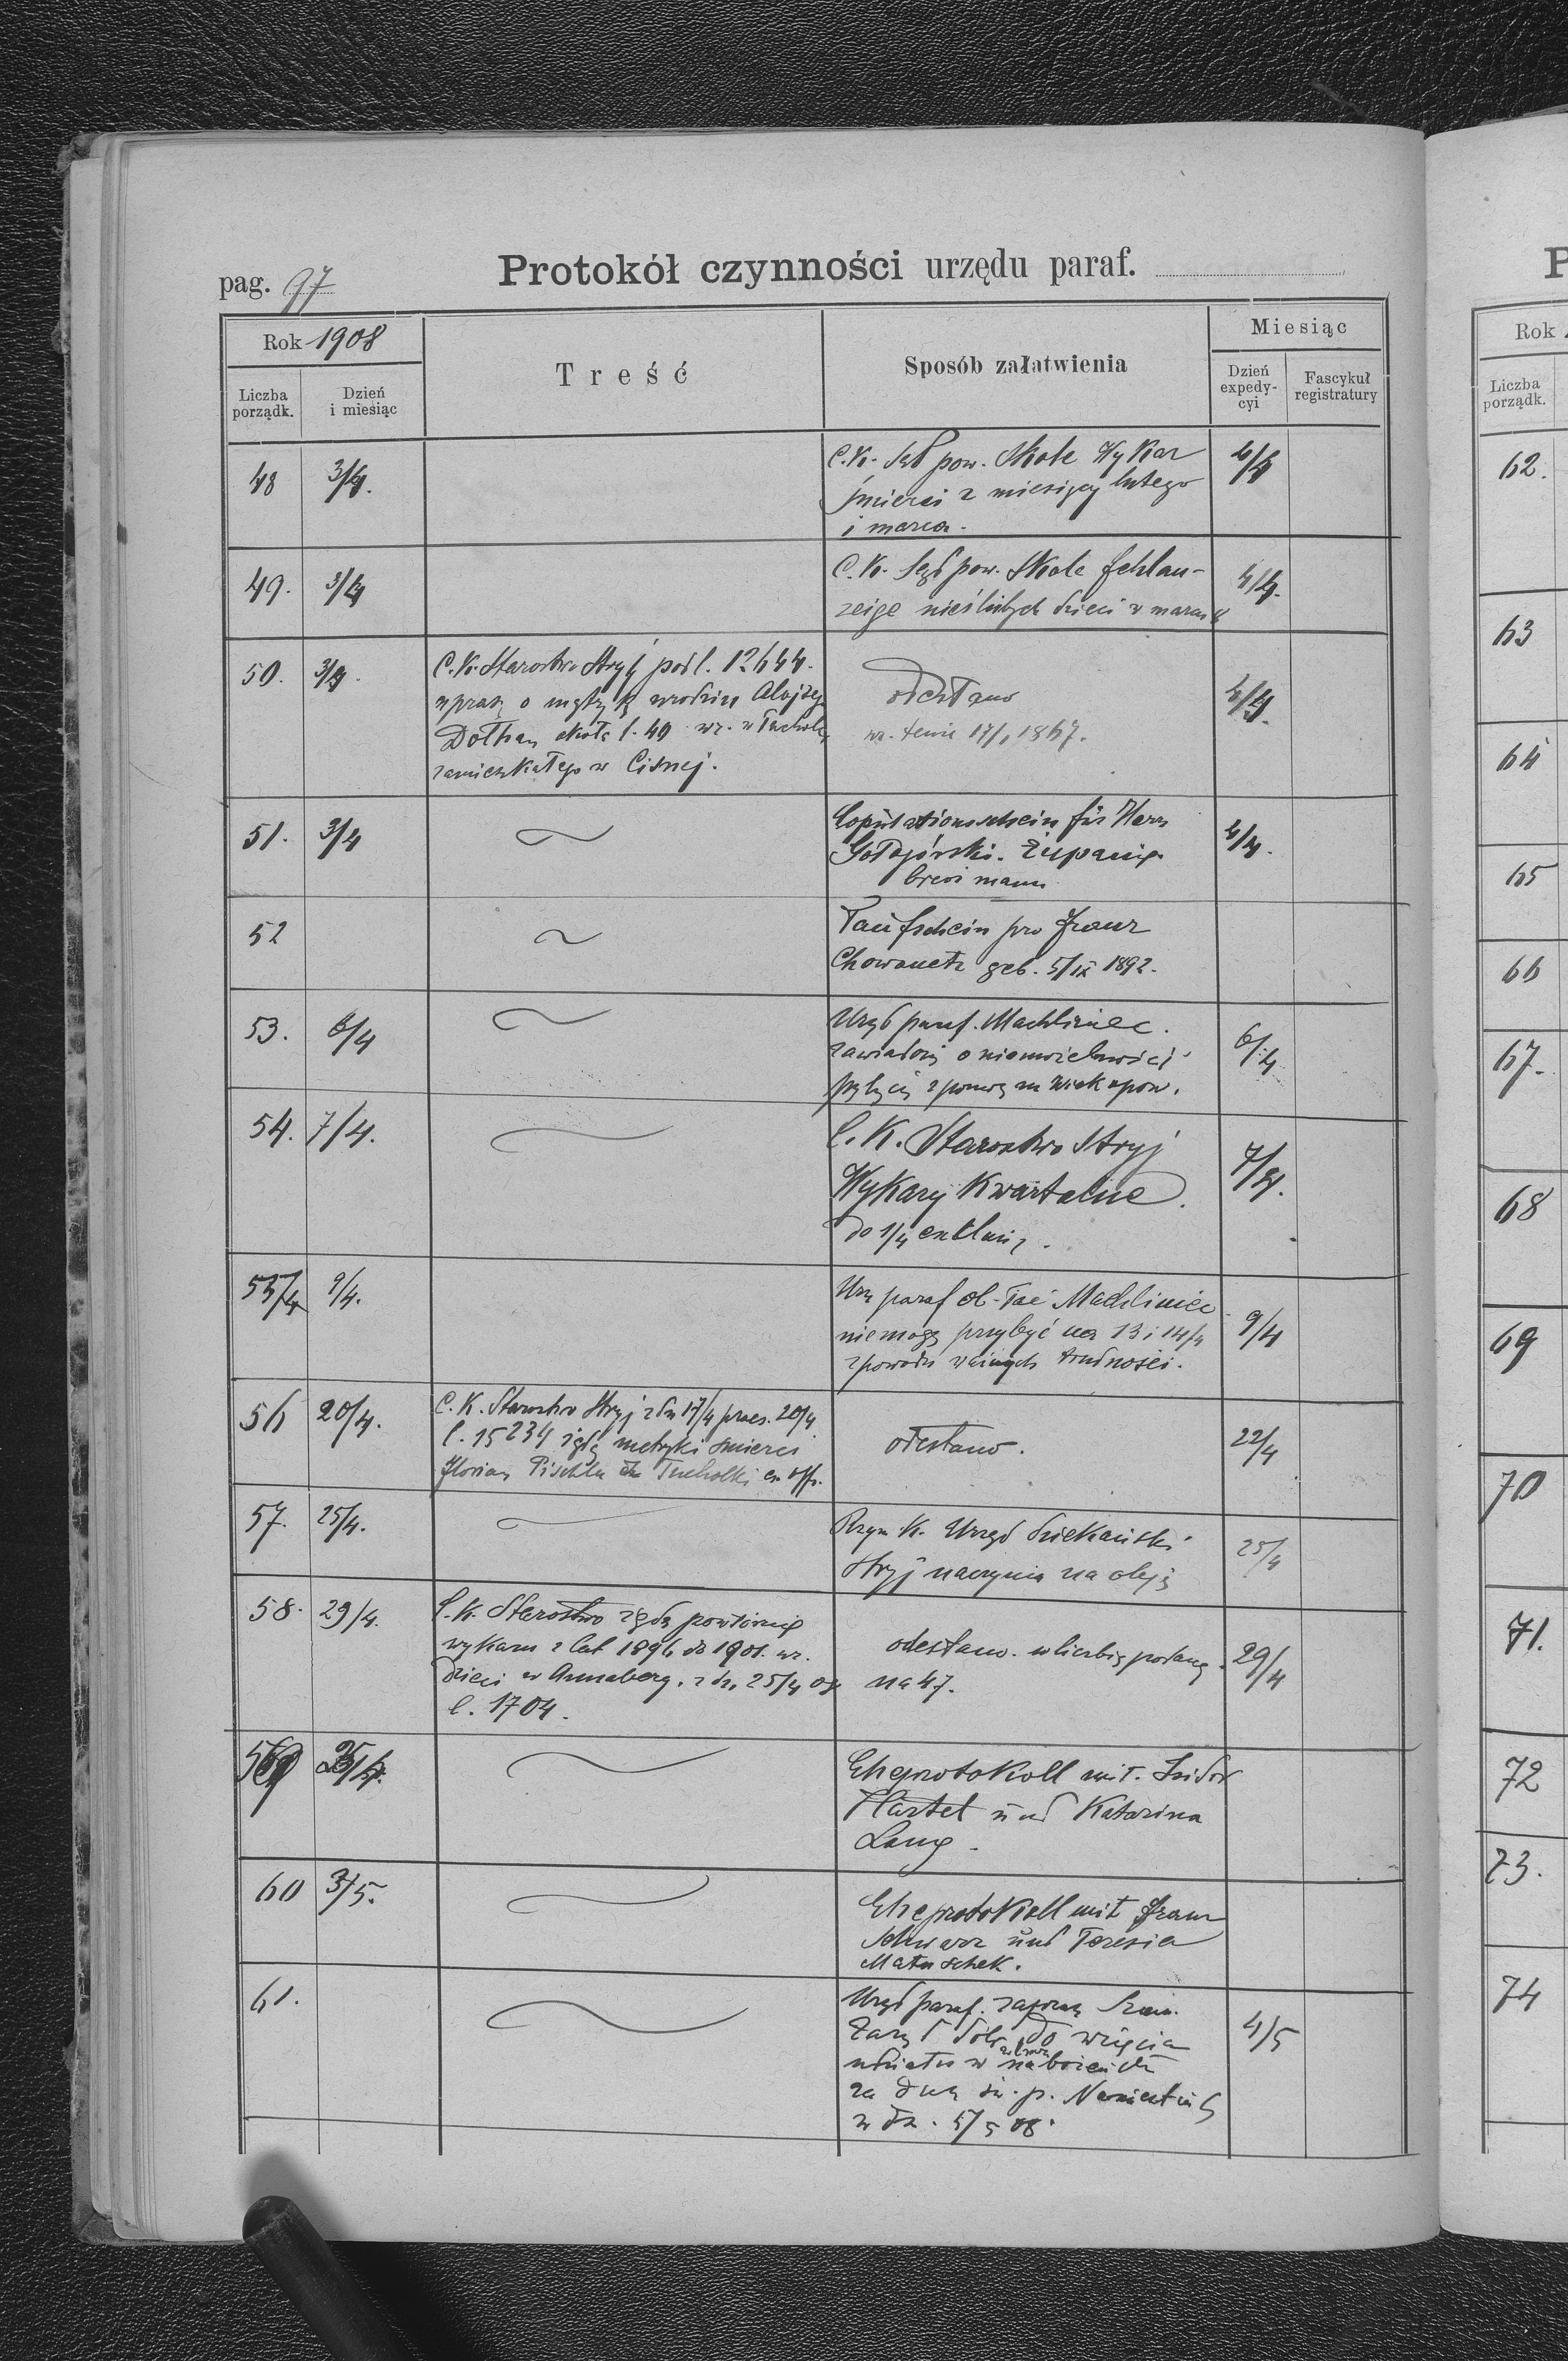 pag. 97 Protokół czynności urzędu paraf.
Rok 1908
Treść
Sposób załatwienia
Miesiąc
Liczba porządk.
Dzień i miesiąc
Dzień expedy-cyi
Fascykuł registratury
48 3/4. C. K. Sąd pow. Skole Wykaz 4/4
śmierci z miesięcy lutego
i marca.
49. 3/4 C. K. Sąd pow. Skole Fehlan- 4/4.
zeige nieślubnych dzieci w marcu
50. 3/4. C. K. Starostwo Stryj pod l. 12644. odesłano 4/4.
uprasza o metrykę urodzin Alojzego ur. 17/1 1867.
l. 40 ur. w
zamieszkałego w Cisnej.
51. 3/4 ~ Copulationsschein für Herr 4/4.
brevi manu
52 ~ Taufschein pro Franz
Chowanetz geb. 5/IX 1892.
53. 6/4 ~ Urząd paraf. Machliniec. 6/4
zawiadomi o niemożebności
54. 7/4. ~ C. K. Starostwo Stryj 7/4.
Wykazy Kwartalne.
do 1/4
55/4 9/4. paraf Machliniec 9/4
niemogę przybyć na 13 i 14/4
z powodu ważnych trudności.
56 20/4. C. K. Starostwo Stryj z dn 17/4 praes. 20/4 odesłano. 22/4
l. 15234 żąda metryki śmierci
Florian Tucholki ex offo.
57. 25/4. ~ Rzym. K. Urząd dziekański 25/4
Stryj naczynia na oleje
58. 29/4. C. K. Starostwo żąda powtórnie odesłano. w liczbie podanej 29/4
wykazu z lat 1896 do 1901. ur. na 47.
dzieci w Annaberg. z dn. 25/4 08
l. 1704.
59 ~ Eheprotokoll mit. Isidor
Hartel und Katarina
Lang.
60 3/5. ~ Eheprotokoll mit Franz
Schwarz und Teresia
Matuschek.
61. ~ Urząd paraf. 4/5
do wzięcia
udziału w nabożeństwie
za duszę śp.
w dn. 5/5 08.
P
Rok
Liczba porządk.
62.
63
64
65
66
67.
68
69
70
71.
72
73.
74